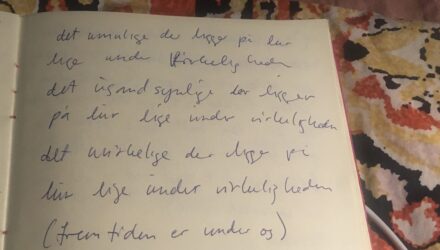 det umulige der ligger på lur
lige under virkeligheden
det usandsynlige der ligger
på lur lige under virkeligheden
det uvirkelige der ligger på
lur lige under virkeligheden
(fremtiden er under os)